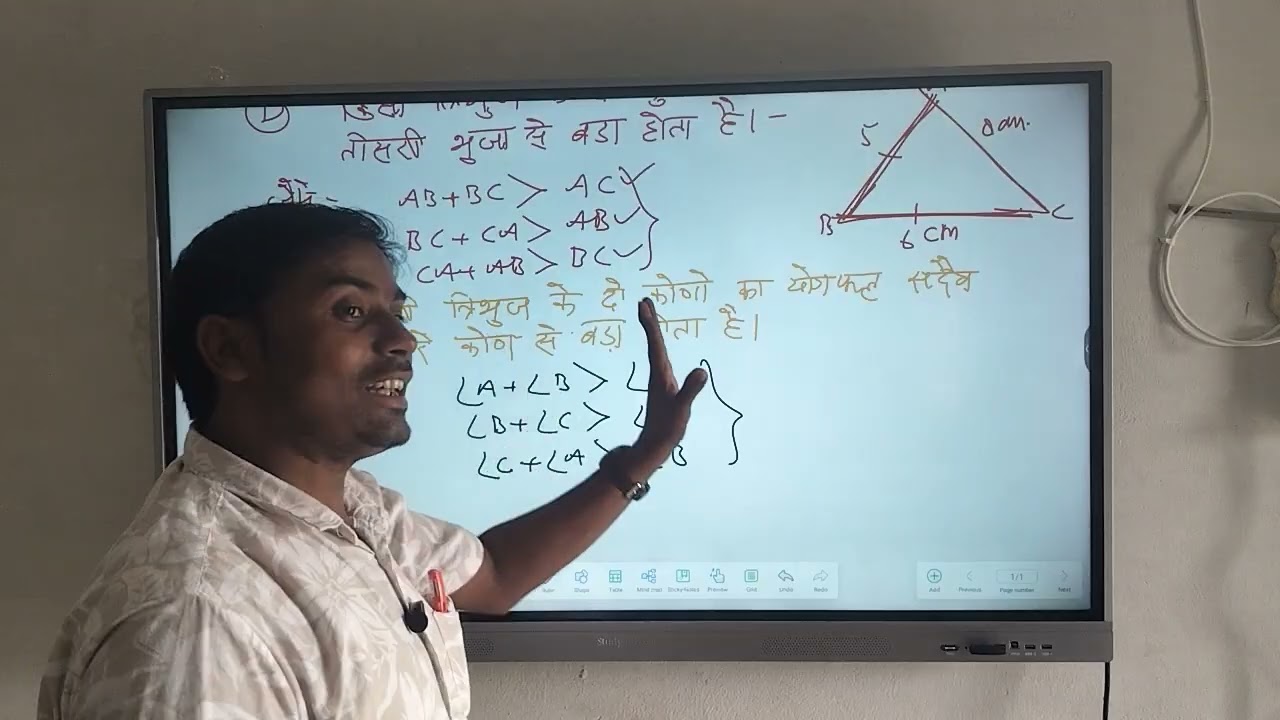 1
त्रिभुज
तीसरी भुजा से बडा होता है।-
जैसे-
AB+BC > AC
BC + CA > AB
CA + AB > BC
5
B
6 CM
C
त्रिभुज के दो कोणो का योगफल सदैव
कोण से बड़ा होता है।
∠A + ∠B >
∠B + ∠C >
∠C + ∠A > B
Shape
Table
Mind map
Sticky Notes
Preview
Grid
Undo
Redo
Add
Previous
1/1
Page number
Next
Study